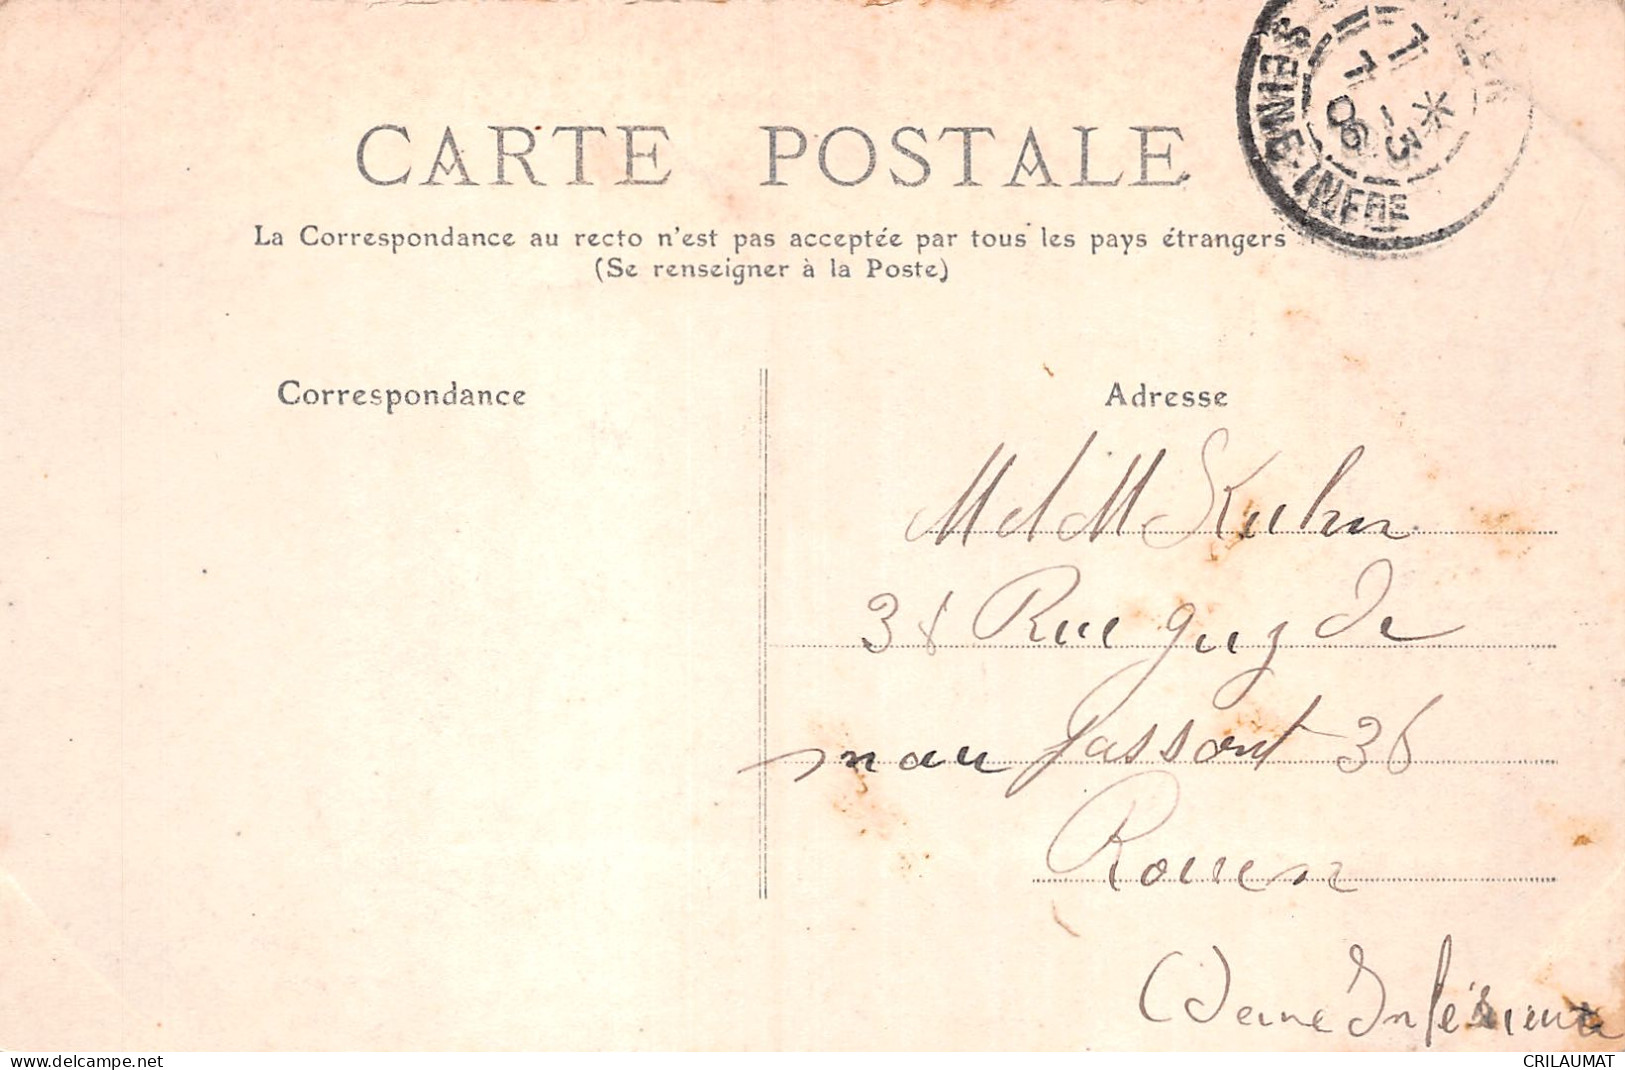 CARTE POSTALE
La Correspondance au recto n'est pas acceptée par tous les pays étrangers
(Se renseigner à la Poste)
ROUEN
7 *
7 -3
06
SEINE-INFRE
Correspondance
Adresse
M et M Kuhn
38 Rue guy de
mau passant 36
Rouen
(Seine Inférieure
CRILAUMAT